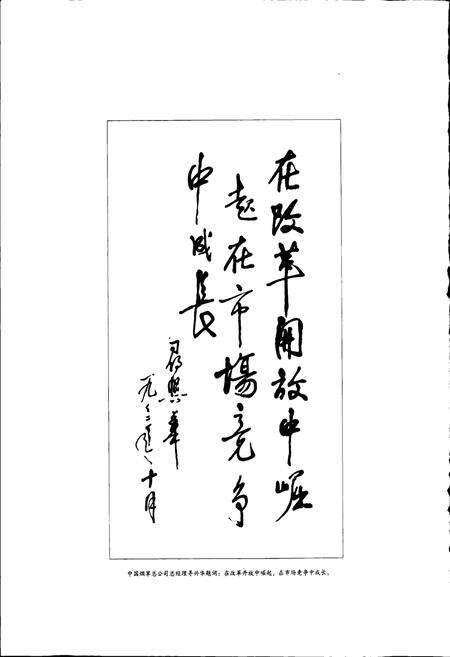 在改革開放中崛
起在市場競争
中成長
一九九二年十月
中国烟草总公司总经理寻兴华题词：在改革开放中崛起，在市场竞争中成长。